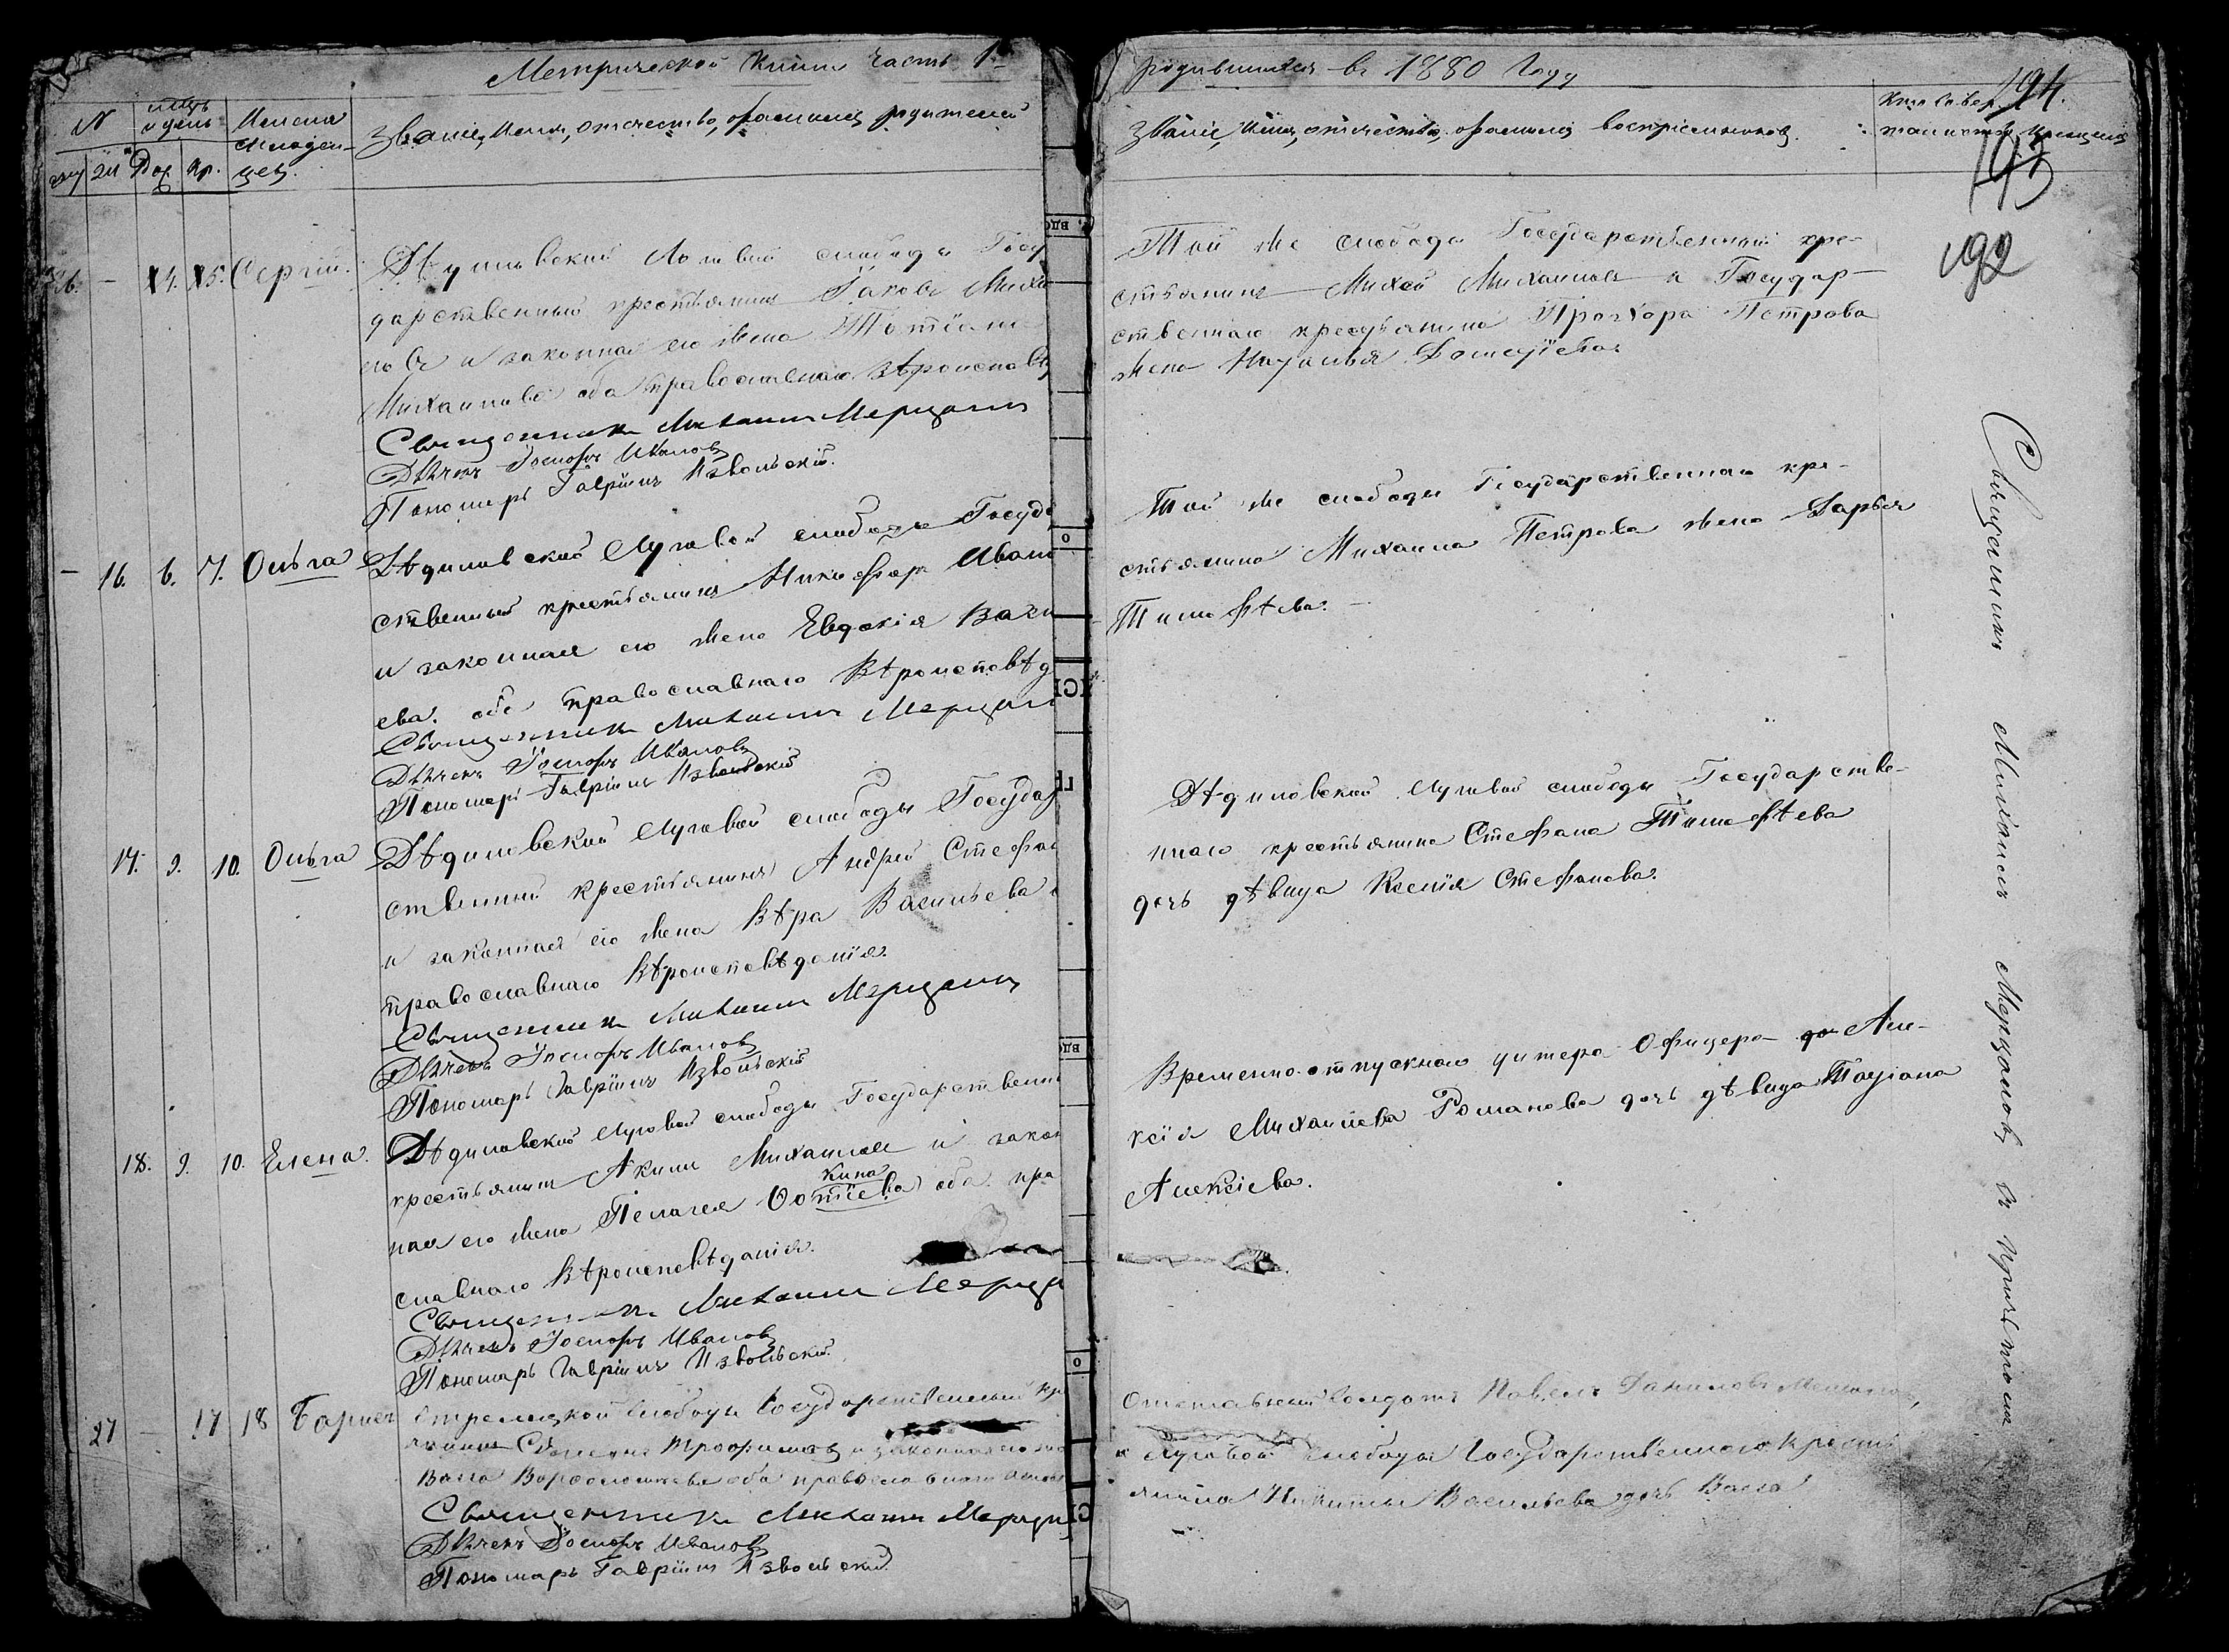 Метрической Книги Часть 1я
родившихся въ 1880 Году
194.
193
192
N
мцъ и день
Имена младен-
цевъ.
Званіе, Имя, отечество, фамилія родителей
Званіе, Имя, отечество, фамилія воспріемниковъ.
Кто совер.
таинство Крещенія
Рож. Кр.
26. — 14. 15. Сергій.
Дѣдиловской Луговой слободы Госу
дарственный крестьянинъ Іаковъ Михаи
ловъ и законная его жена Татіана
Михаилова оба православнаго вѣроисповѣ
Священникъ Михаилъ Мерцаловъ
Дьячекъ Іосифъ Ивановъ
Пономарь Гавріилъ Извольскій.
Той же слободы Государственный кре-
стьянинъ Михей Михаиловъ и Государ-
ственнаго крестьянина Прохора Петрова
жена Наталья
— 16. 6. 7. Ольга
Дѣдиловской Луговой слободы Госуда
ственный крестьянинъ Никифоръ Ивано
и законная его жена Евдокія Васи
ева. оба православнаго Вѣроисповѣд
Священникъ Михаилъ Мерцалов
Дьячекъ Іосифъ Ивановъ
Пономарь Гавріилъ Извольскій
Той же слободы Государственнаго кре-
стьянина Михаила Петрова жена Дарья
Тимофѣева.
17. 9. 10. Ольга
Дѣдиловской Луговой слободы Государ
ственный крестьянинъ Андрей Стефан
и законная его жена Вѣра Васильева
православнаго Вѣроисповѣденія.
Священникъ Михаилъ Мерцаловъ
Дьячекъ Іосифъ Ивановъ
Пономарь Гавріилъ Извольскій
Дѣдиловской Луговой слободы Государстве-
ннаго крестьянина Стефана Тимофѣева
дочь дѣвица Ксенія Стефанова.
18. 9. 10. Елена.
Дѣдиловской Луговой слободы Государственн
крестьянинъ Акимъ Михаиловъ и закон
ная его жена Пелагея оба пра
славнаго Вѣроисповѣданія.
Священникъ Михаилъ Мерца
Дьячекъ Іосифъ Ивановъ
Пономарь Гавріилъ Извольскій.
Временно-отпускнаго унтера Офицера Але-
ксія Михаилева Романова дочь дѣвица Татіана
Алексіева.
27 — 17 18 Борисъ
Стрелецкой слободы Государственный кр
янинъ Трофимовъ и законная его
Васса Варфоломеева оба православнаго
Священникъ Михаилъ Мерцал
Дьячекъ Іосифъ Ивановъ
Пономарь Гавріилъ Извольскій
Отставный солдатъ Павелъ Даниловъ
и Луговой слободы Государственнаго Кресть
янина Никиты Васильева дочь Васса
Священникъ Михаилъ Мерцаловъ съ причетомъ